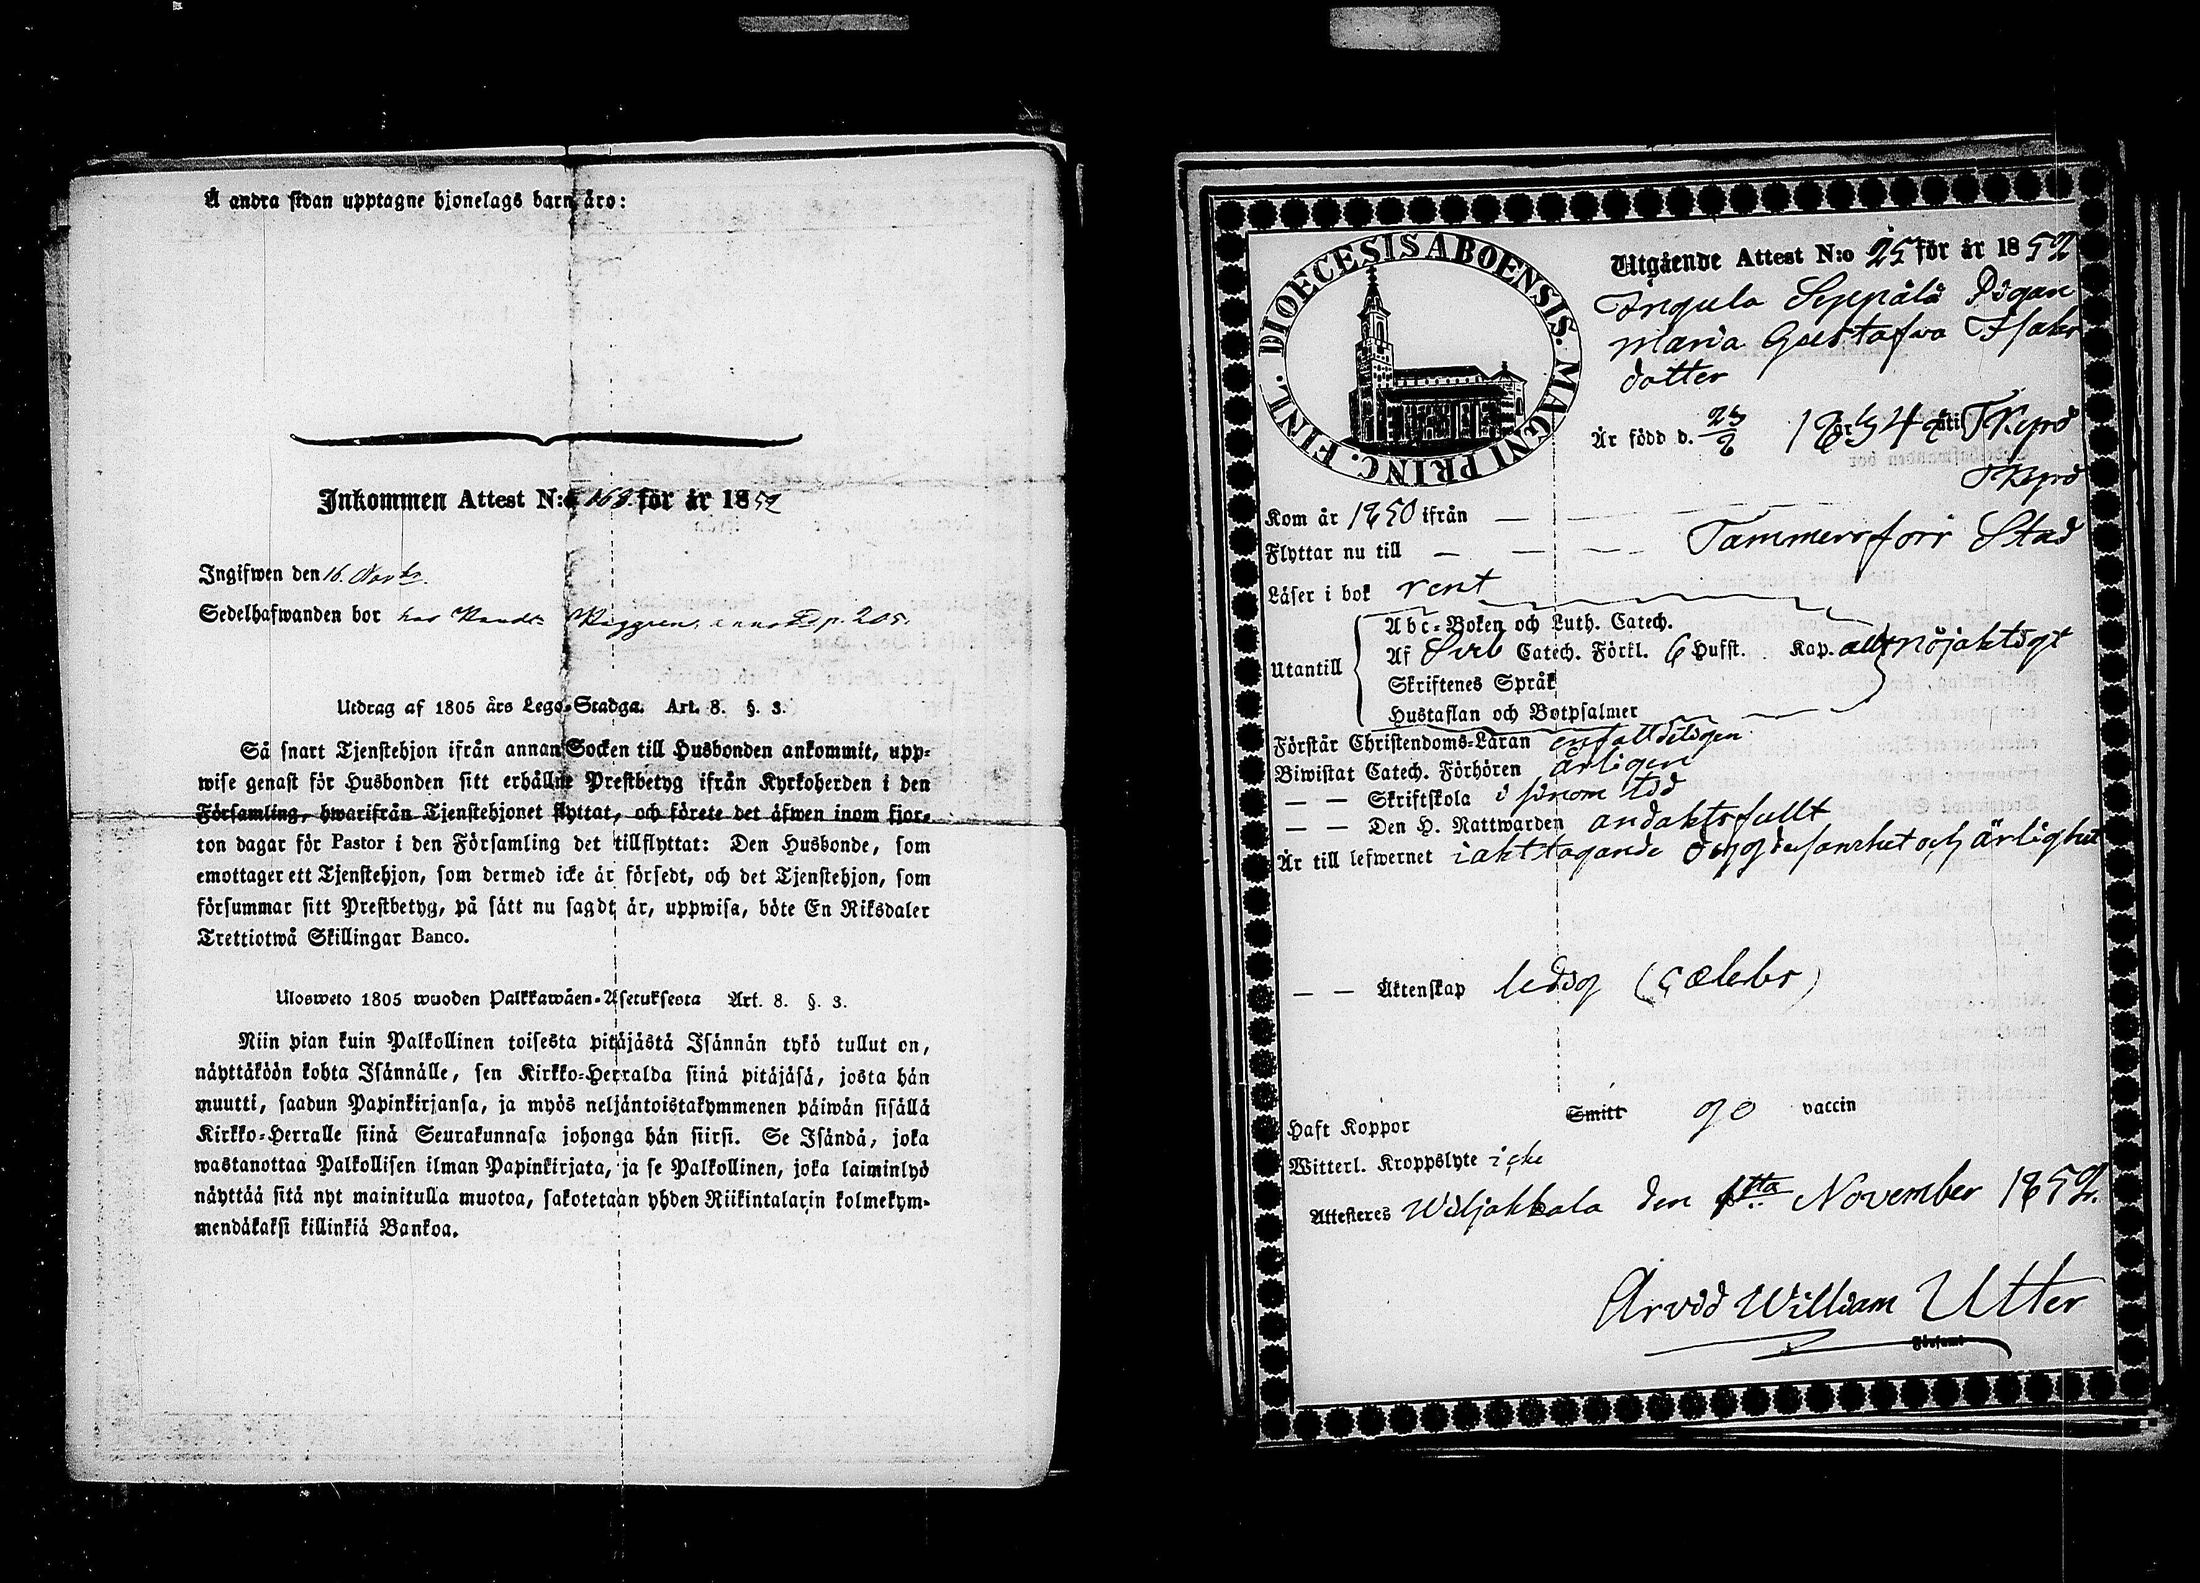 Å andra sidan upptagne hjonelags barn äro:
Inkommen Attest N:o 168 för år 1852
Ingifwen den 16. Novbr.
Sedelhafwanden bor hos Handl. p. 205.
Utdrag af 1805 års Lego-Stadga. Art. 8. §. 3.
Så snart Tjenstehjon ifrån annan Socken till Husbonden ankommit, upp-
wise genast för Husbonden sitt erhållne Prestbetyg ifrån Kyrkoherden i den
Församling, hwarifrån Tjenstehjonet flyttat, och förete det äfwen inom fjor-
ton dagar för Pastor i den Församling det tillflyttat: Den Husbonde, som
emottager ett Tjenstehjon, som dermed icke är försedt, och det Tjenstehjon, som
försummar sitt Prestbetyg, på sätt nu sagdt är, uppwisa, böte En Riksdaler
Trettiotwå Skillingar Banco.
Ulosweto 1805 wuoden Palkkawäen-Asetuksesta Art. 8. §. 3.
Niin pian kuin Palkollinen toisesta pitäjästä Isännän tykö tullut on,
näyttäköön kohta Isännälle, sen Kirkko-Herralda siinä pitäjäsä, josta hän
muutti, saadun Papinkirjansa, ja myös neljäntoistakymmenen päiwän sisällä
Kirkko-Herralle siinä Seurakunnasa johonga hän siirsi. Se Isändä, joka
wastanottaa Palkollisen ilman Papinkirjata, ja se Palkollinen, joka laiminlyö
näyttää sitä nyt mainitulla muotoa, sakotetaan yhden Riikintalarin kolmekym-
mendäkaksi killinkiä Bankoa.
DIOECESIS ABOENSIS. MAGNI PRINC. FINL.
Utgående Attest N:o 25 för år 1852
Ingula Seppälä Pigan
Maria Gustafva Isaks
dotter
Är född d. 23/2 1834 i Kyro
Kom år 1850 ifrån — — Kyro
Flyttar nu till — — — Tammerfors Stad
Läser i bok rent
Utantill
Abc-Boken och Luth. Catech.
Af Sveb Catech. Förkl. 6 Hufst. Kap. allt nöjaktigt
Skriftenes Språk
Hustaflan och Botpsalmer
Förstår Christendoms-Läran enfalldeligen
Biwistat Catech. Förhören årligen
— — Skriftskola i sinom tid
— — Den H. Nattwarden andaktsfullt
Är till lefwernet iakttagande dygdesamhet och ärlighet
— — Äktenskap ledig (cælebs)
Haft Koppor Smitt go vaccin
Witterl. Kroppslyte icke
Attesteres Wiljakkala den 1sta November 1852.
Arvid William Utter